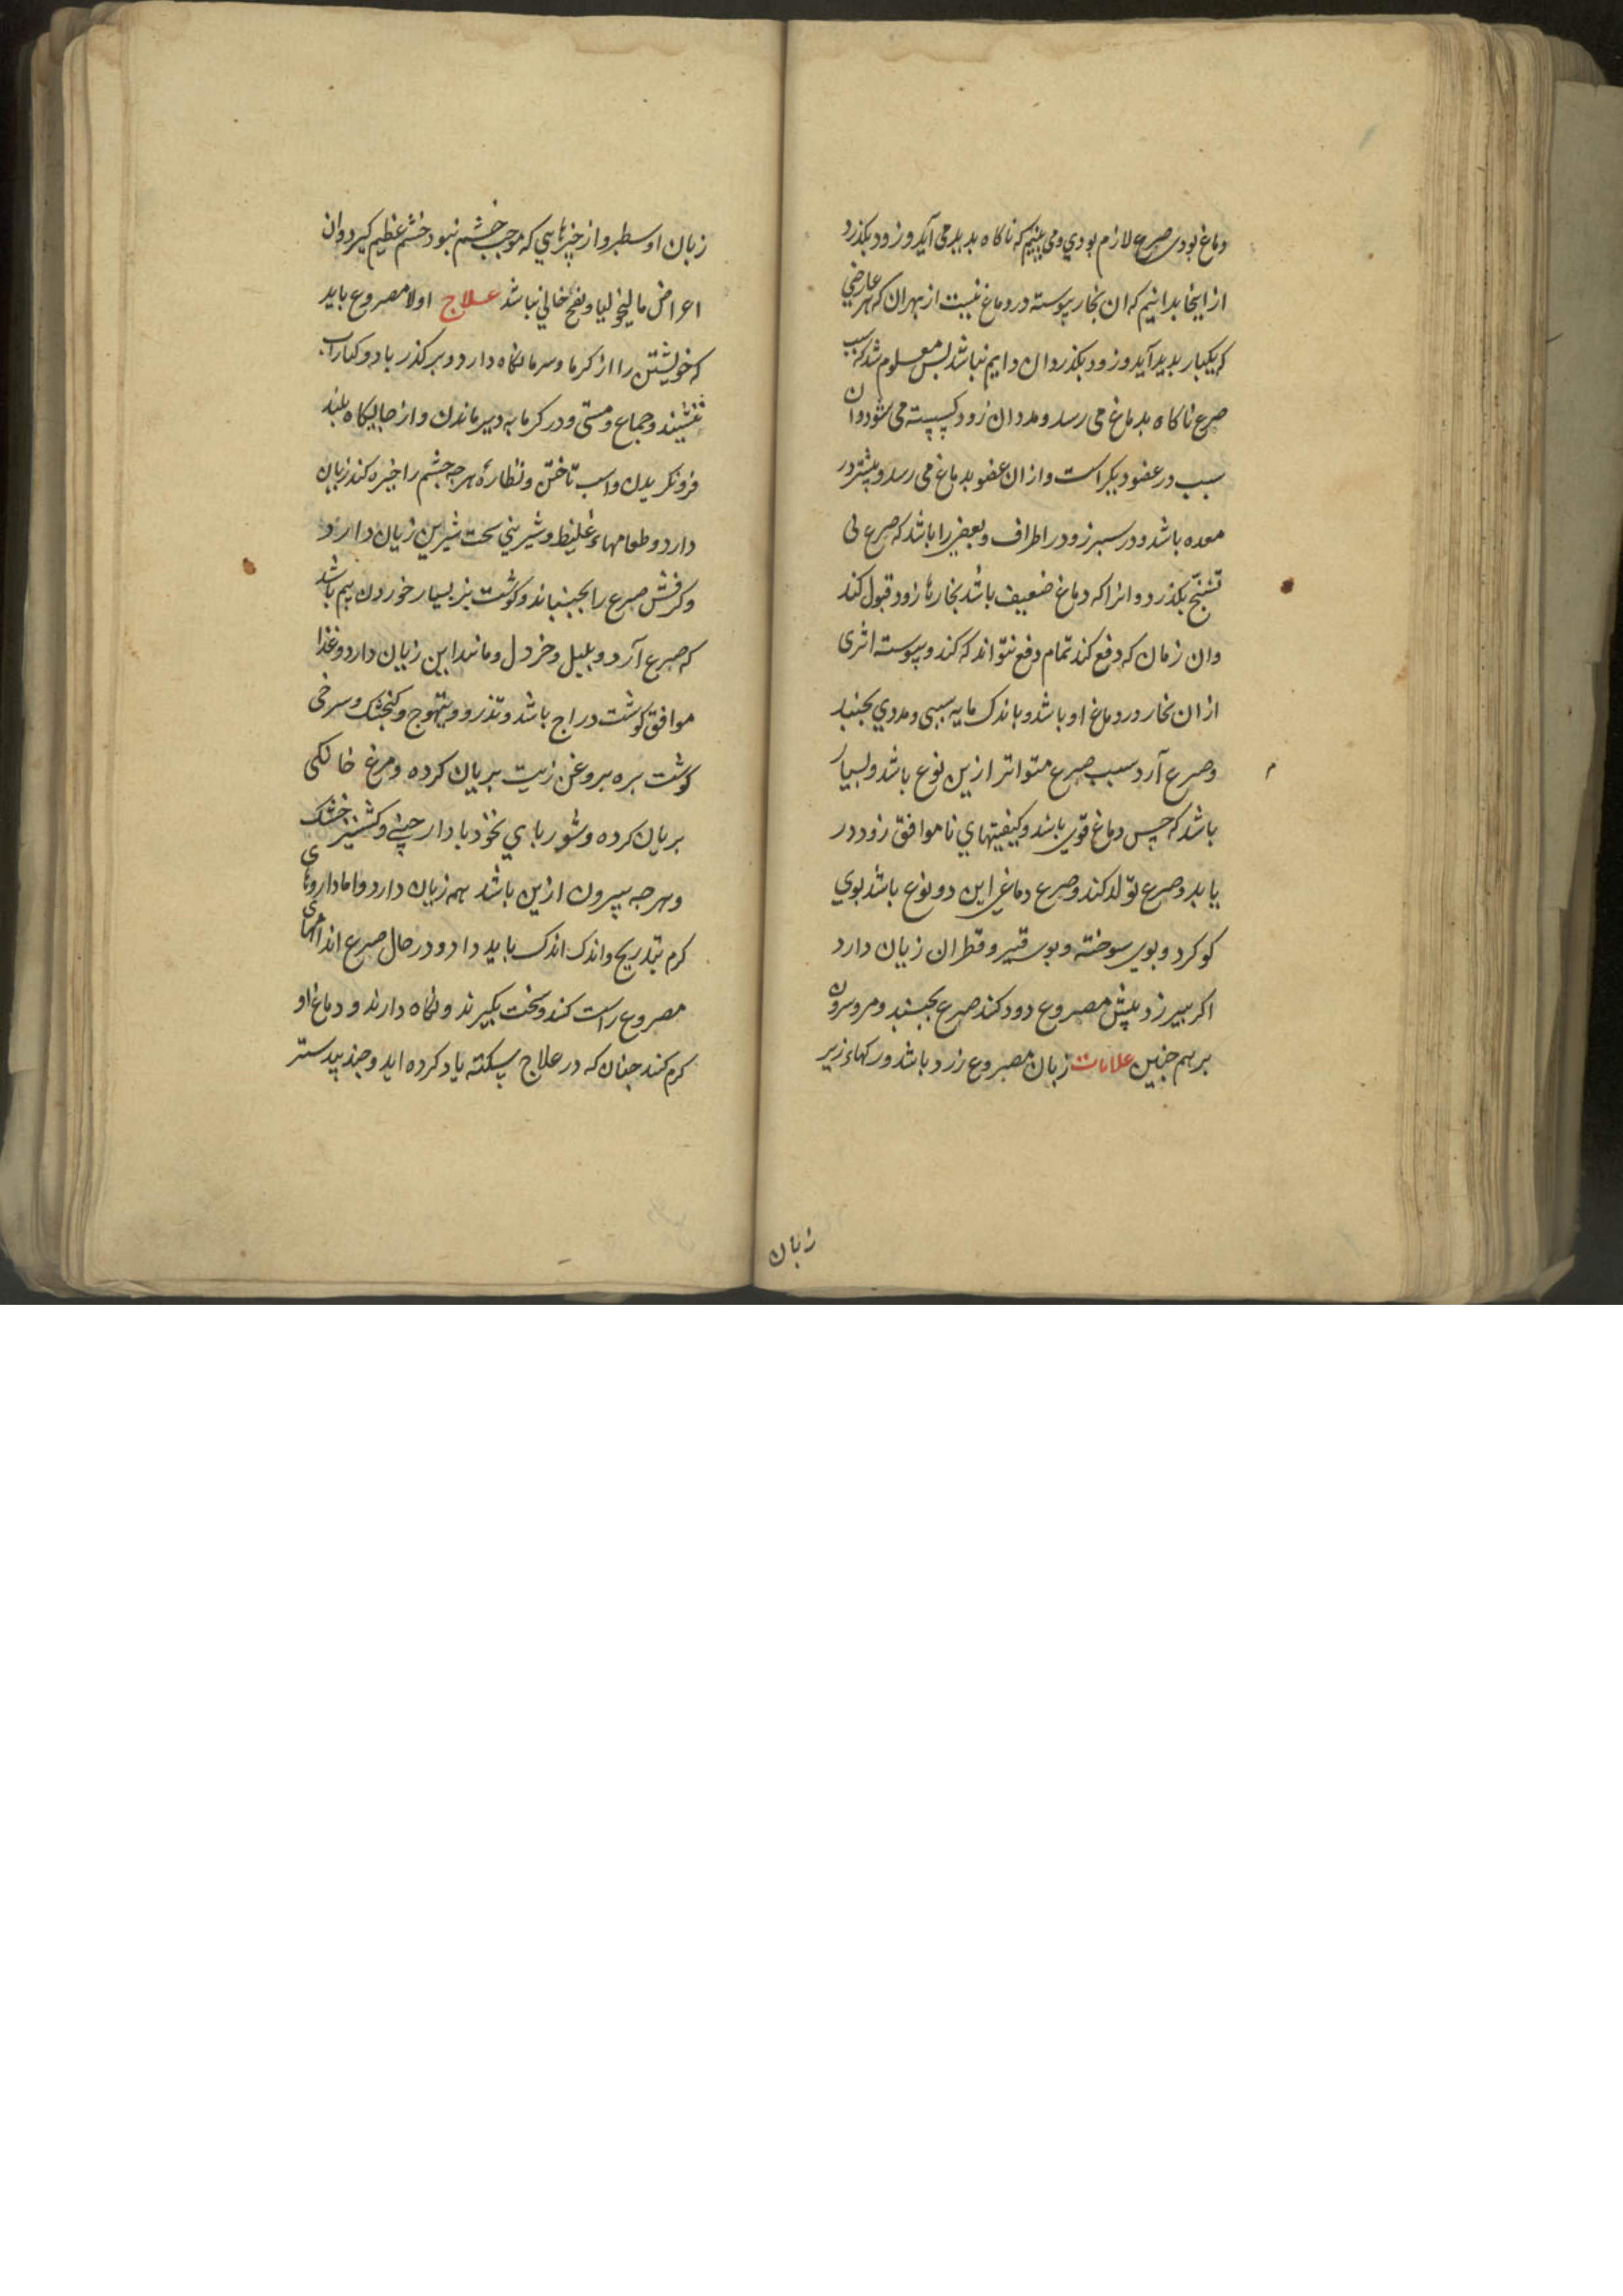 دماغ بودی صرع لازم بودي ومی بینیم که ناکاه بدید می آید وزود بکذرد
از اینجا بدانیم که ان بخار پیوسته در دماغ نیست از بهر ان که هر عارضي
که یکبار بدید آید وزود بکذرد ان دایم نباشد بس معلوم شد که سبب
صرع ناکاه بدماغ می رسد ومدد ان زود کسسته می شود وان
سبب در عضو دیکر است واز ان عضو بدماغ می رسد وبیشتر در
معده باشد ودر سبرز ودر اطراف وبعضی را باشد که صرع بی
تشنج بکذرد وانرا که دماغ ضعیف باشد بخارها زود قبول کند
وان زمان که دفع کند تمام دفع نتواند که کند وپیوسته اثری
از ان بخار در دماغ او باشد وباندک مایه سببی ومددي بجنبد
وصرع آرد سبب صرع متواتر ازین نوع باشد وبسیار
باشد که حس دماغ قوی باشد وکیفیتهاي ناموافق زود در
یابد وصرع تولد کند وصرع دماغی این دو نوع باشد بوي
کوکرد وبوی سوخته وبوی قیر وقطران زیان دارد
اکر سر زد پیش مصروع دود کند صرع بجنبد ومر وسرون
بر هم جنین علامات زبان مصروع زرد باشد ورکهاء زیر
زبان
زبان او سطبر واز چیزهایي که موجب خشم نبود خشم عظیم کیرد وان
اعراض مالیخولیا ونفخ خالي نباشد علاج اولا مصروع باید
که خویشتن را از کرما وسرما نکاه دارد وبر کذر باد وکنار اب
ننشیند وجماع ومستی ودر کرمابه دیر ماندن واز جایکاه بلند
فرو نکریدن واسب تاختن ونظارهٔ هر جه جشم را خیره کند زیان
دارد وطعامهاء غلیظ وشیریني سخت شیرین زیان دارد
وکرفش صرع را بجنباند وکوشت بز بسیار خوردن بیم باشد
که صرع آرد وبلبل وخردل ومانند این زیان دارد وغذا
موافق کوشت دراج باشد وتذرو وتیهوج وکنجشک وسرخی
کوشت بره بروغن زیت بریان کرده ومرغ خانکی
بریان کرده وشورباي نخود با دارچینی وکشنیز خشک
وهر جه بیرون ازین باشد همه زیان دارد واما داروهای
کرم بتدریج واندک اندک باید داد ودر حال صرع اندامهای
مصروع راست کند وسخت بکیرند ونکاه دارند ودماغ او
کرم کنند جنان که در علاج سکته یاد کرده اید وجندبیدستر